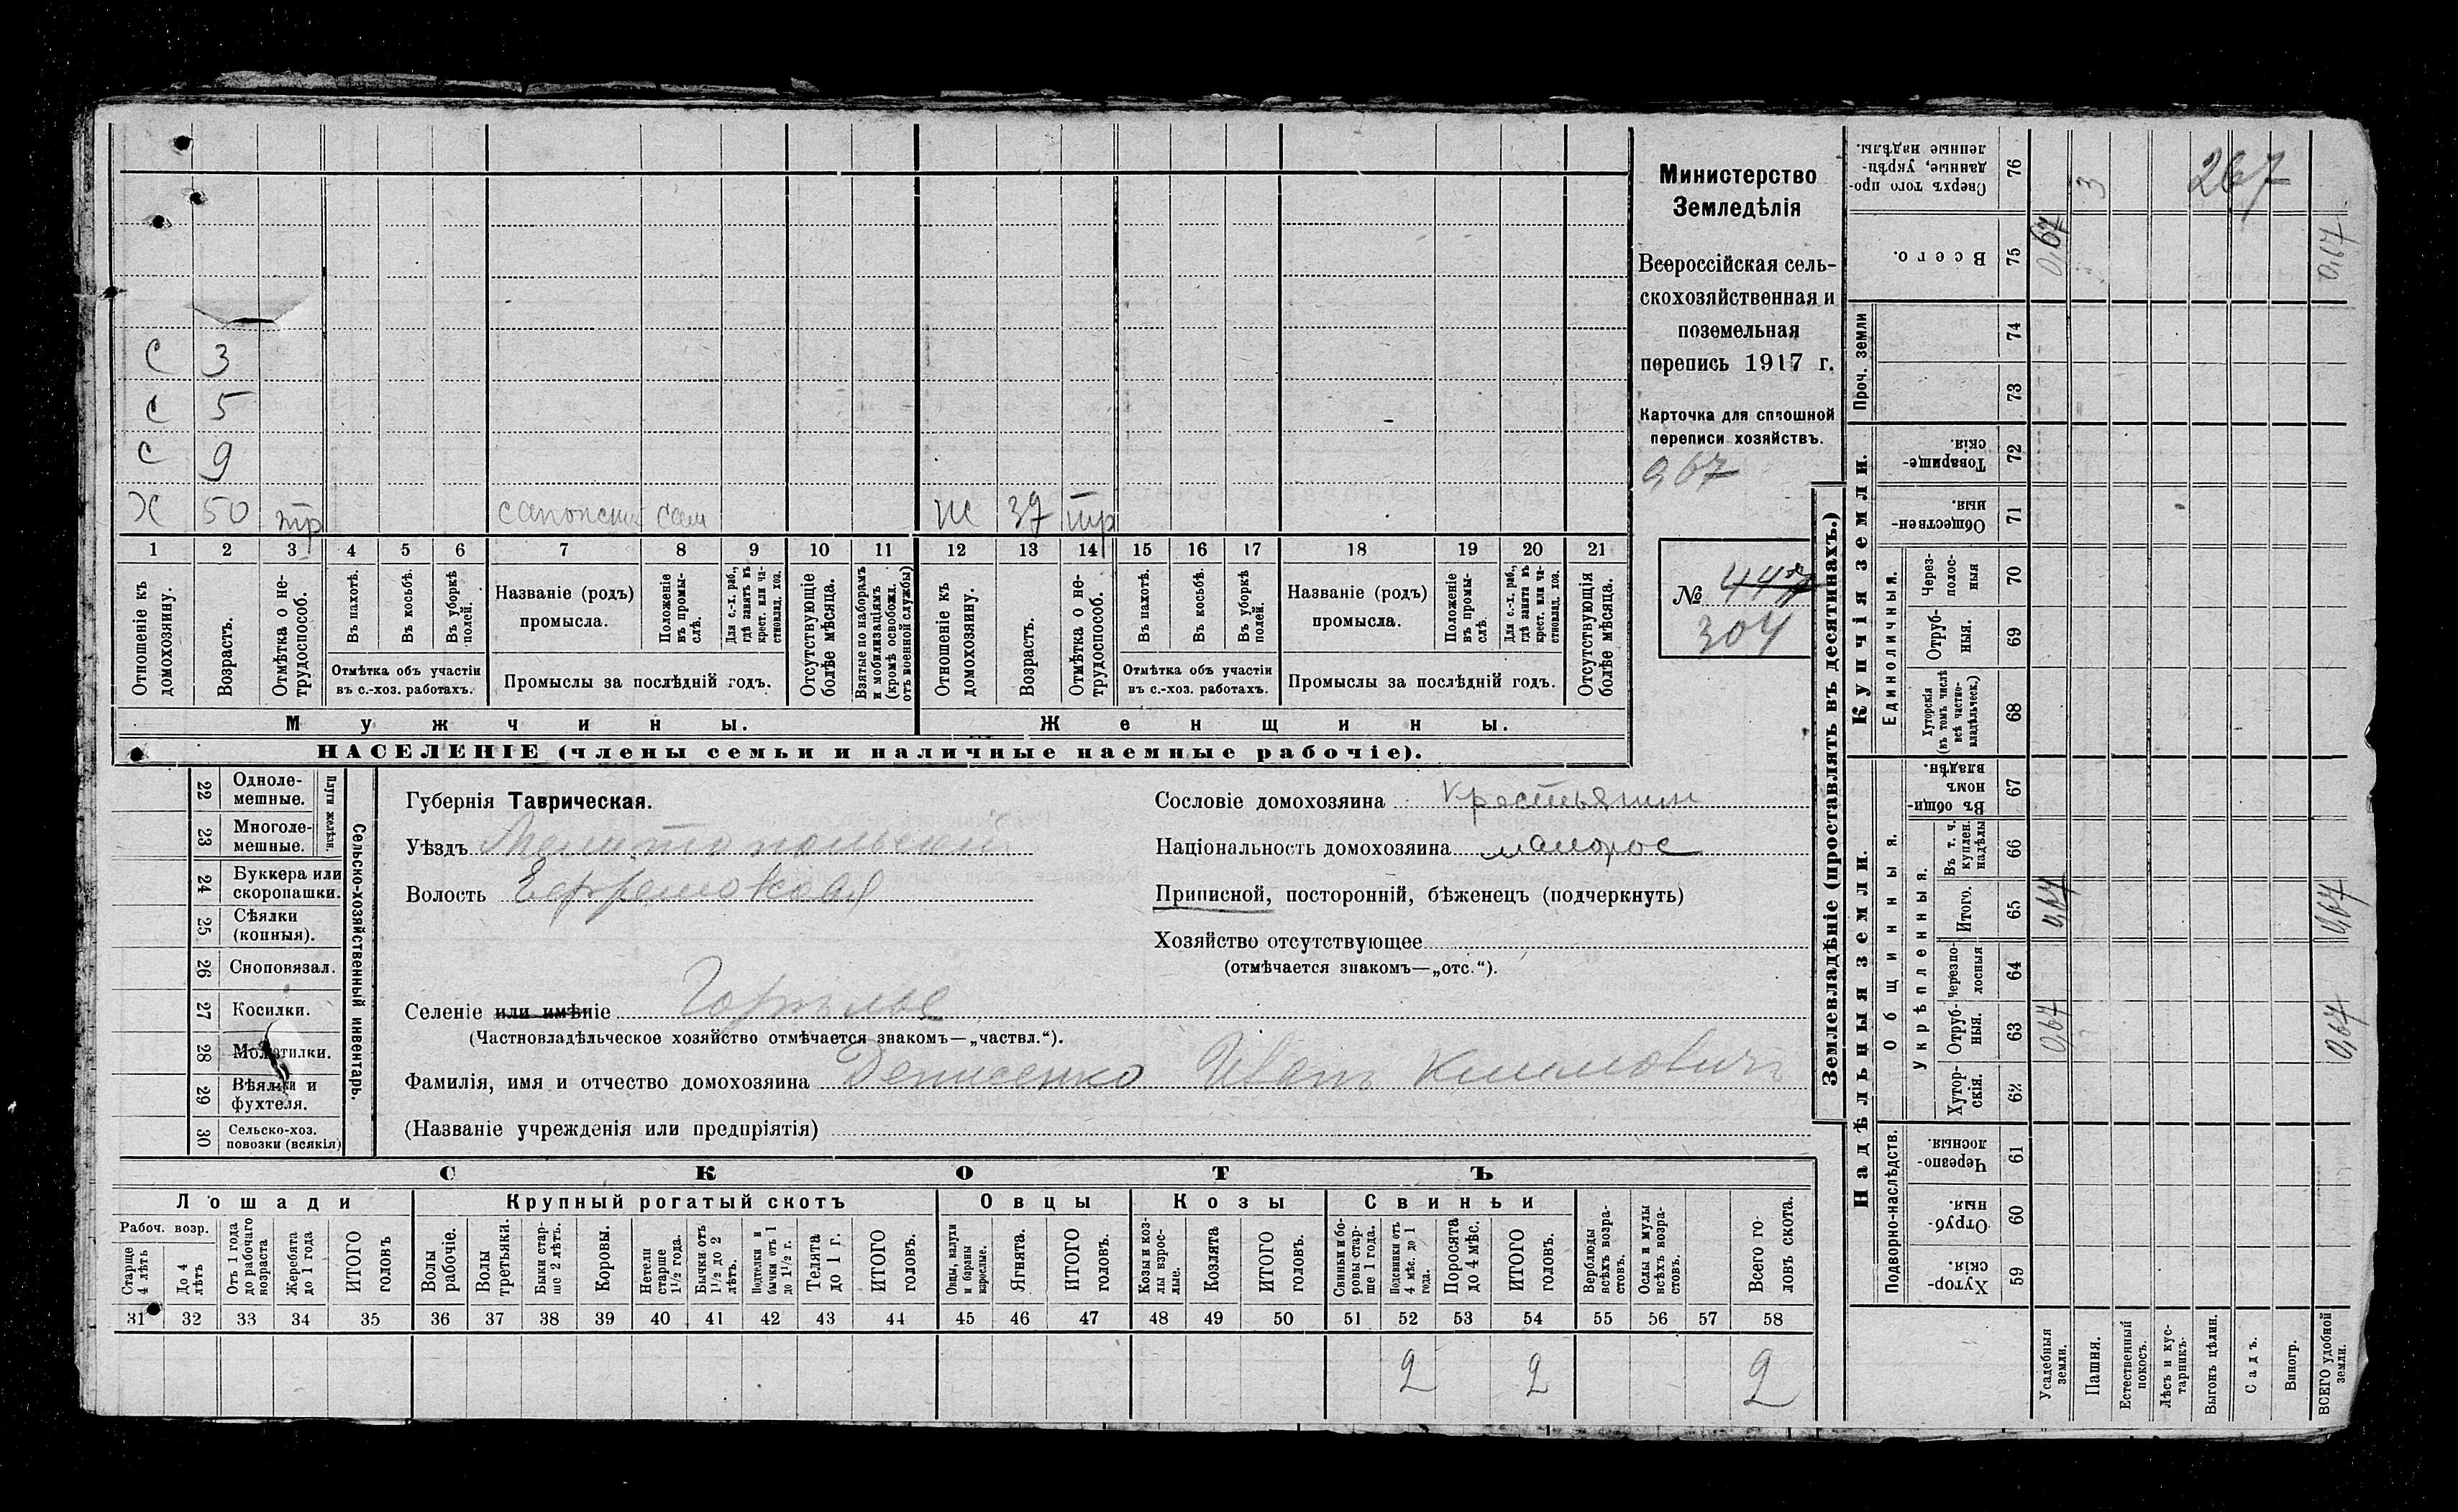 С 3
С 5
С 9
Х 50 тр сапожник сам Ж 37 тр
1 2 3 4 5 6 7 8 9 10 11 12 13 14 15 16 17 18 19 20 21
Отношеніе къ домохозяину.
Возрастъ.
Отмѣтка о не-трудоспособ.
Въ пахотѣ.
Въ косьбѣ.
Въ уборкѣ полей.
Отмѣтка объ участіи
въ с.-хоз. работахъ.
Названіе (родъ)
промысла.
Положеніе въ промы-слѣ.
Для с.-х. раб., гдѣ занятъ въ крест. или ча-стновлад. хоз.
Промыслы за послѣдній годъ.
Отсутствующіе болѣе мѣсяца.
Взятые по наборамъ и мобилизаціямъ (кромѣ освобожд. отъ военной службы)
Отношеніе къ домохозяину.
Возрастъ.
Отмѣтка о не-трудоспособ.
Въ пахотѣ.
Въ косьбѣ.
Въ уборкѣ полей.
Отмѣтка объ участіи
въ с.-хоз. работахъ.
Названіе (родъ)
промысла.
Положеніе въ промы-слѣ.
Для с.-х. раб., гдѣ занята въ крест. или ча-стновлад. хоз.
Промыслы за послѣдній годъ.
Отсутствующія болѣе мѣсяца.
Мужчины. Женщины.
НАСЕЛЕНІЕ (члены семьи и наличные наемные рабочіе).
Министерство
Земледѣлія
Всероссійская сель-
скохозяйственная и
поземельная
перепись 1917 г.
Карточка для сплошной
переписи хозяйствъ.
0,67
№
304
22 Одноле-мешные.
23 Многоле-мешные.
Плуги желѣзн.
24 Буккера или скоропашки.
25 Сѣялки (конныя).
26 Сноповязал.
27 Косилки.
28 Молотилки.
29 Вѣялки и фухтеля.
30 Сельско-хоз. повозки (всякія)
Сельско-хозяйственный инвентарь.
Губернія Таврическая.
Уѣздъ Мелитопольский
Волость Ефремовская
Селеніе или имѣніе Горѣлое
(Частновладѣльческое хозяйство отмѣчается знакомъ—„частвл.“).
Фамилія, имя и отчество домохозяина Денисенко Иванъ Климовичъ
(Названіе учрежденія или предпріятія)
Сословіе домохозяина крестьянин
Національность домохозяина малорос
Приписной, посторонній, бѣженецъ (подчеркнуть)
Хозяйство отсутствующее
(отмѣчается знакомъ—„отс.“).
СКОТЪ
Лошади Крупный рогатый скотъ Овцы Козы Свиньи
Рабоч. возр.
Старше 4 лѣтъ
До 4 лѣтъ
Отъ 1 года до рабочаго возраста
Жеребята до 1 года
ИТОГО головъ
Волы рабочіе.
Волы третьяки.
Быки стар-ше 2 лѣтъ.
Коровы.
Нетели старше 1½ года.
Бычки отъ 1½ до 2 лѣтъ.
Подтелки и бычки отъ 1 до 1½ г.
Телята до 1 г.
ИТОГО головъ.
Овцы, валухи и бараны взрослые.
Ягнята.
ИТОГО головъ.
Козы и коз-лы взрос-лые.
Козлята
ИТОГО головъ.
Свиньи и бо-ровы стар-ше 1 года.
Подсвинки отъ 4 мѣс. до 1 года.
Поросята до 4 мѣс.
ИТОГО головъ.
Верблюды всѣхъ возра-стовъ.
Ослы и мулы всѣхъ возра-стовъ.
Всего го-ловъ скота.
31 32 33 34 35 36 37 38 39 40 41 42 43 44 45 46 47 48 49 50 51 52 53 54 55 56 57 58
2 2 2
Землевладѣніе (проставлять въ десятинахъ.)
Надѣльныя земли. Купчія земли. Проч. земли
Подворно-наслѣдств.
Общинныя.
Укрѣпленныя.
Единоличныя.
Хутор-скія. 59
Отруб-ныя. 60
Черезпо-лосныя. 61
Хутор-скія. 62
Отруб-ныя. 63 0,67 0,67
Черезпо-лосныя 64
Итого. 65 0,67 0,67
Въ т. ч. куплен. надѣлы 66
Въ общин-номъ владѣн. 67
Хуторскія (въ томъ числѣ всѣ частно-владѣльческ.) 68
Отруб-ныя. 69
Через-полос-ныя 70
Обществен-ныя. 71
Товарище-скія. 72
73
74
Всего. 75 0,67 0,67
Сверхъ того про-данные, укрѣп-ленные надѣлы. 76 3 267
Усадебныя земли.
Пашня.
Естественный покосъ.
Лѣсъ и кус-тарникъ.
Выгонъ цѣлин.
Садъ.
Виногр.
ВСЕГО удобной земли.